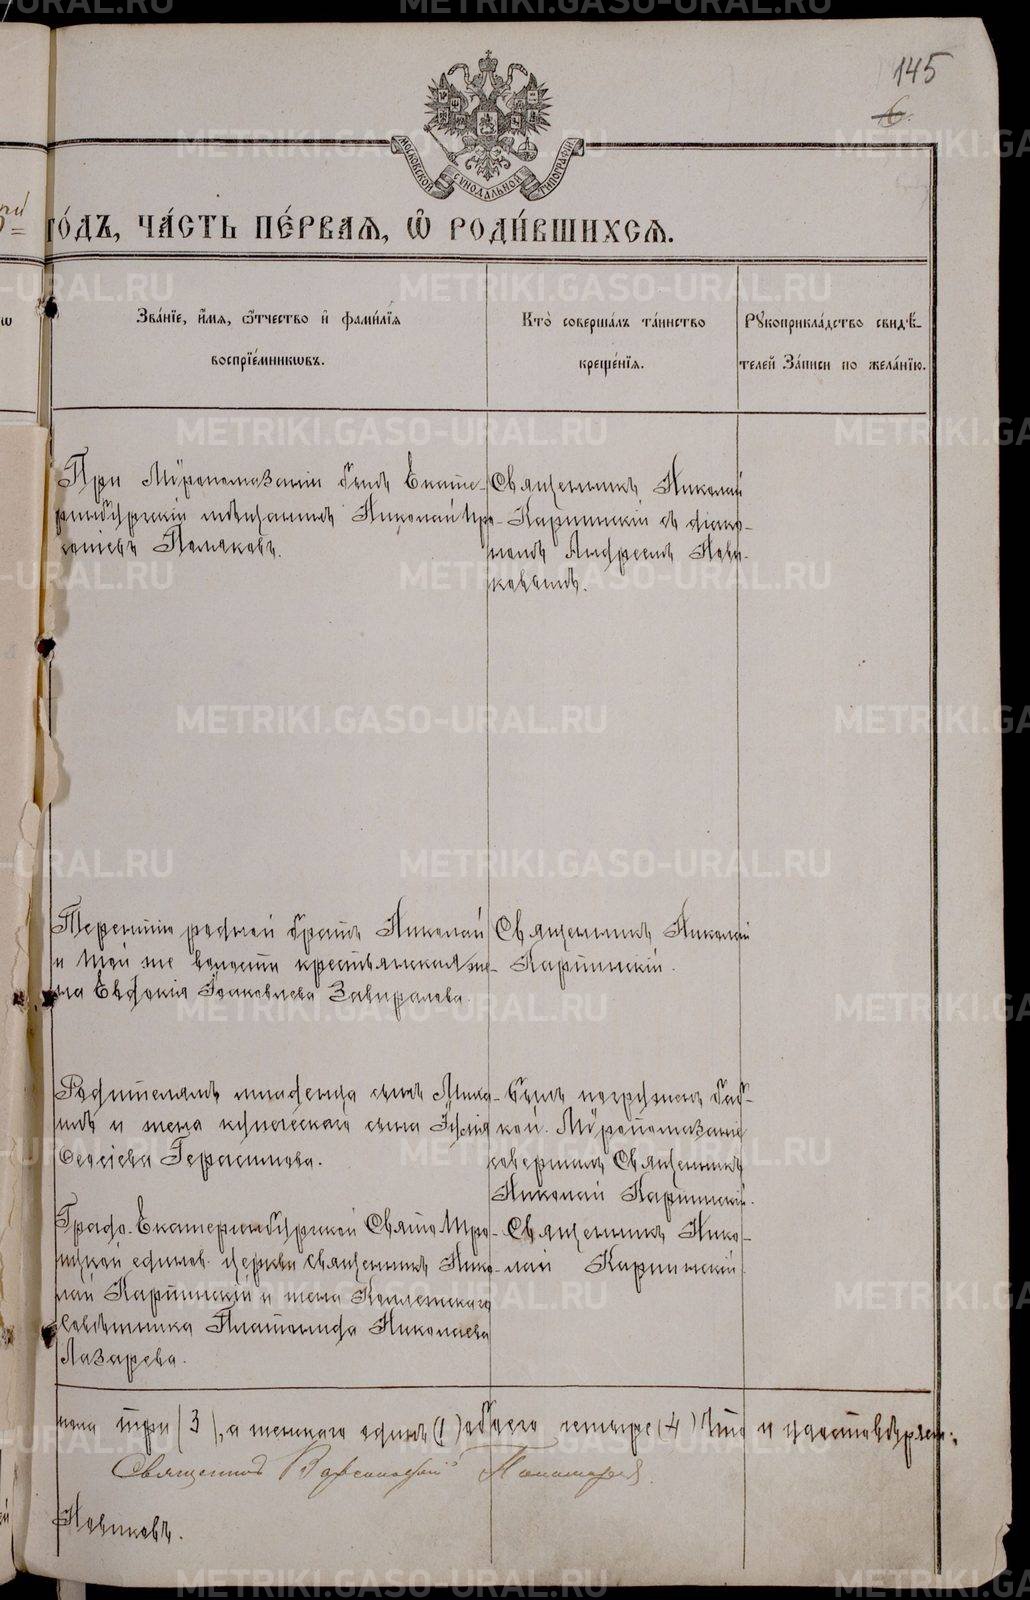 145
6.
МОСКОВСКОЙ СѴНОДАЛЬНОЙ ТИПОГРАФІИ
го́дъ, ча́сть пе́рваѧ, ѡ҆ роди́вшихсѧ.
Зва́нїе, и҆́мѧ, ѻ҆́тчество и҆ фами́лїѧ
воспрїе́мникѡвъ.
Кто̀ соверша́лъ та́инство
креще́нїѧ.
Рꙋкоприкла́дство свидѣ́-
телей за́писи по жела́нїю.
При Мѵропомазаніи былъ Екате-
ринбургскій мѣщанинъ Николай
Поляковъ.
Священникъ Николай
Карпинскій съ діако-
номъ Андреемъ Нови-
ковымъ.
Терентія родной братъ Николай
и той же волости крестьянская же-
на Евдокія Іоаковлева Завиралова.
Священникъ Николай
Карпинскій.
Родителямъ младенца сынъ
и жена купеческаго сына
Герасимова.
былъ погруженъ баб-
кой. Мѵропомазаніе
совершалъ Священникъ
Николай Карпинскій.
Градо-Екатеринбургской Свято Тро-
ицкой единов. церкви священникъ Нико-
лай Карпинскій и жена Коллежскаго
Совѣтника Платонида Николаева
Лазарева.
Священникъ Нико-
лай Карпинскій.
пола три (3), а женскаго одинъ (1) обоего четыре (4) Что и удостовѣряемъ:
Священникъ Пономаревъ
Новиковъ.
METRIKI.GASO-URAL.RU